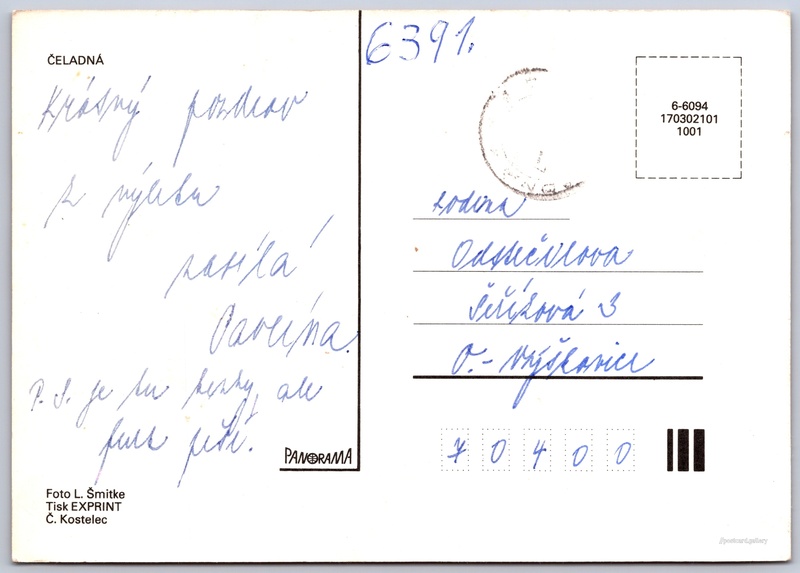 ČELADNÁ
Krásný pozdrav
z výletu
zasílá
Pavlína.
P. S. je tu hezky, ale
furt prší.
PANORAMA
Foto L. Šmitke
Tisk EXPRINT
Č. Kostelec
6391.
6-6094
170302101
1001
rodina
Odstrčilova
Šeříková 3
O.-Výškovice
70400
postcard.gallery